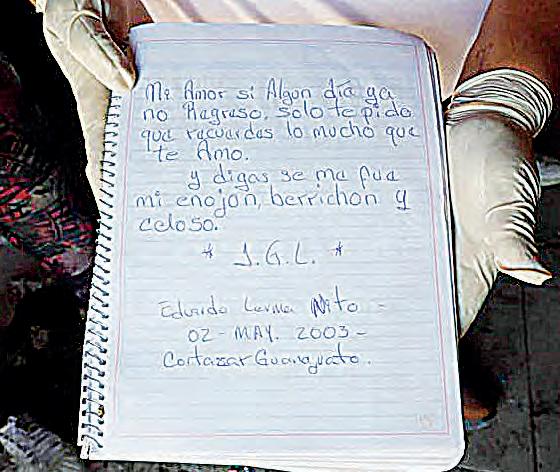 Mi Amor si Algun día ya
no Regreso, solo te pido
que recuerdes lo mucho que
te Amo.
y digas se me fue
mi enojon, berrichon y
celoso.
* J.G.L. *
Eduardo Lerma Nito -
02 - MAY. 2003 -
Cortazar Guanajuato.